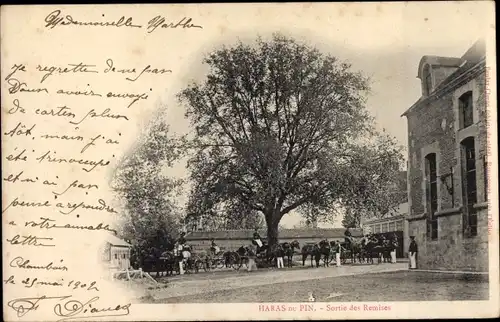 Mademoiselle Marthe
Je regrette de ne pas
vous avoir envoyé
de carte plus
tôt mais j'ai
été
et n'ai pas
pensé a répondre
a votre aimable
lettre
Chambois
le 21 mai 1902
HARAS DU PIN. - Sortie des Remises